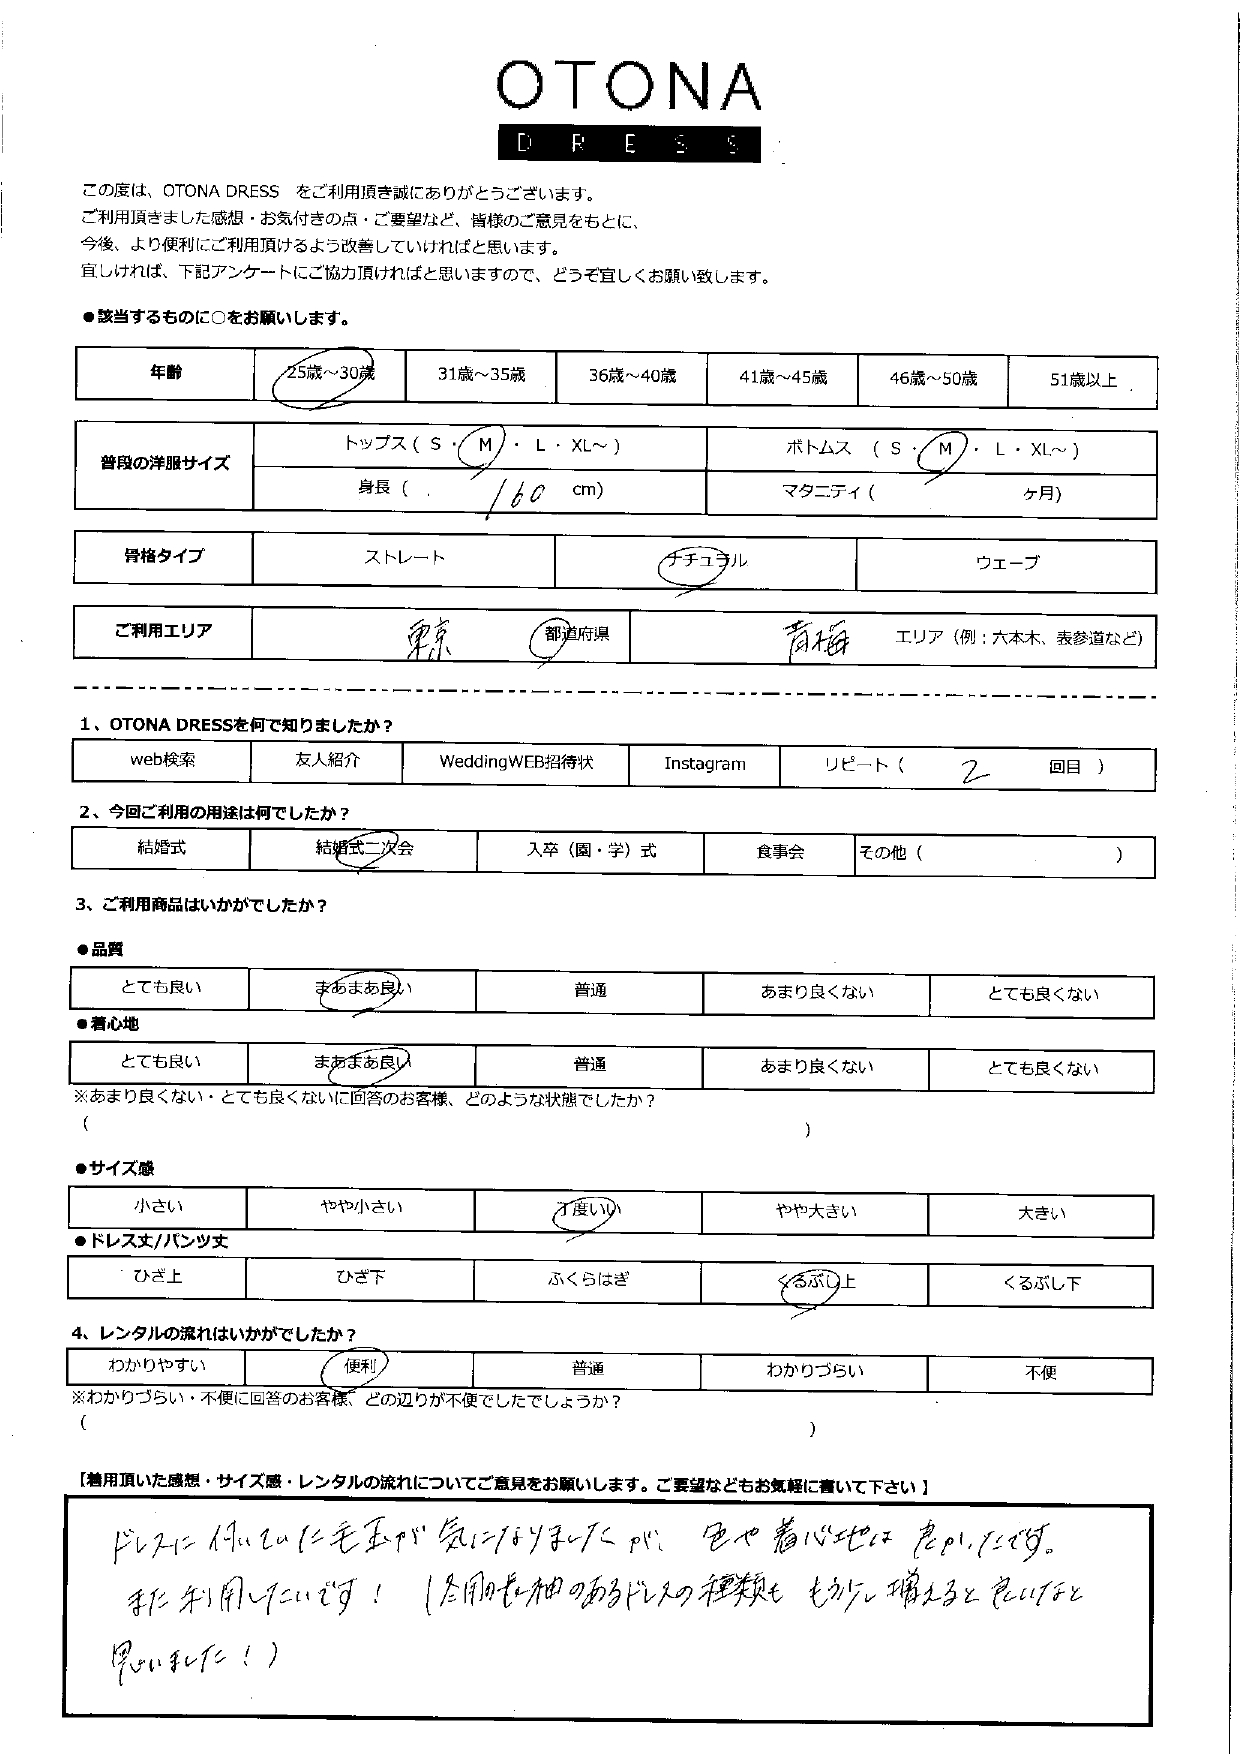 OTONA
DRESS
この度は、OTONA DRESS　をご利用頂き誠にありがとうございます。
ご利用頂きました感想・お気付きの点・ご要望など、皆様のご意見をもとに、
今後、より便利にご利用頂けるよう改善していければと思います。
宜しければ、下記アンケートにご協力頂ければと思いますので、どうぞ宜しくお願い致します。
●該当するものに○をお願いします。
年齢 25歳～30歳 31歳～35歳 36歳～40歳 41歳～45歳 46歳～50歳 51歳以上
普段の洋服サイズ トップス ( S ・ M ・ L ・ XL～ ) ボトムス ( S ・ M ・ L ・ XL～ )
身長 ( 160 cm) マタニティ ( ヶ月)
骨格タイプ ストレート ナチュラル ウェーブ
ご利用エリア 東京 都道府県 青梅 エリア（例：六本木、表参道など）
1、OTONA DRESSを何で知りましたか？
web検索 友人紹介 WeddingWEB招待状 Instagram リピート ( 2 回目 )
2、今回ご利用の用途は何でしたか？
結婚式 結婚式二次会 入卒（園・学）式 食事会 その他 ( )
3、ご利用商品はいかがでしたか？
●品質
とても良い まあまあ良い 普通 あまり良くない とても良くない
●着心地
とても良い まあまあ良い 普通 あまり良くない とても良くない
※あまり良くない・とても良くないに回答のお客様、どのような状態でしたか？
( )
●サイズ感
小さい やや小さい 丁度いい やや大きい 大きい
●ドレス丈/パンツ丈
ひざ上 ひざ下 ふくらはぎ くるぶし上 くるぶし下
4、レンタルの流れはいかがでしたか？
わかりやすい 便利 普通 わかりづらい 不便
※わかりづらい・不便に回答のお客様、どの辺りが不便でしたでしょうか？
( )
【着用頂いた感想・サイズ感・レンタルの流れについてご意見をお願いします。ご要望などもお気軽に書いて下さい】
ドレスに付いていた毛玉が気になりましたが、色や着心地は良かったです。
また利用したいです！（冬用の長袖のあるドレスの種類ももう少し増えると良いなと
思いました！）